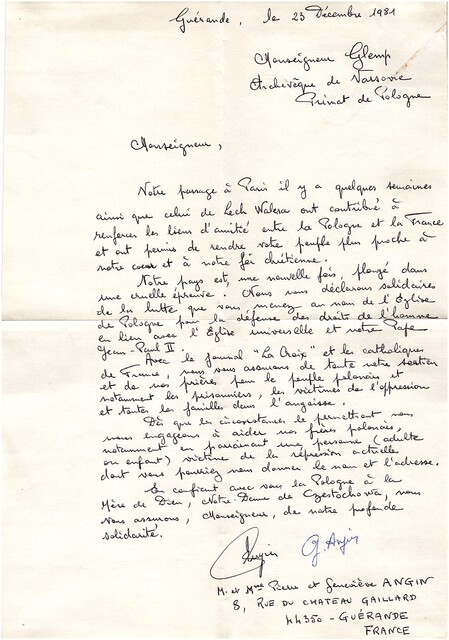 Guérande, le 23 Décembre 1981
Monseigneur Glemp
Archevêque de Varsovie
Primat de Pologne
Monseigneur,
Votre passage à Paris il y a quelques semaines
ainsi que celui de Lech Walesa ont contribué à
renforcer les liens d'amitié entre la Pologne et la France
et ont permis de rendre votre peuple plus proche à
notre cœur et à notre foi chrétienne.
Votre pays est, une nouvelle fois, plongé dans
une cruelle épreuve. Nous nous déclarons solidaires
de la lutte que vous menez au nom de l'Eglise
de Pologne pour la défense des droits de l'homme
en lien avec l'Eglise universelle et notre Pape
Jean-Paul II.
Avec le journal "La Croix" et les catholiques
de France, nous vous assurons de toute notre soutien
et de nos prières pour le peuple polonais et
notamment les prisonniers, les victimes de l'oppression
et toutes les familles dans l'angoisse.
Dès que les circonstances le permettront nous
nous engageons à aider nos frères polonais,
notamment en parrainant une personne (adulte
ou enfant) victime de la répression actuelle
dont vous pourriez nous donner le nom et l'adresse.
En confiant avec vous la Pologne à la
Mère de Dieu, Notre-Dame de Czestochowa, nous
vous assurons, Monseigneur, de notre profonde
solidarité.
Angin G. Angin
M. et Mme Pierre et Geneviève ANGIN
8, RUE DU CHATEAU GAILLARD
44350 - GUÉRANDE
FRANCE